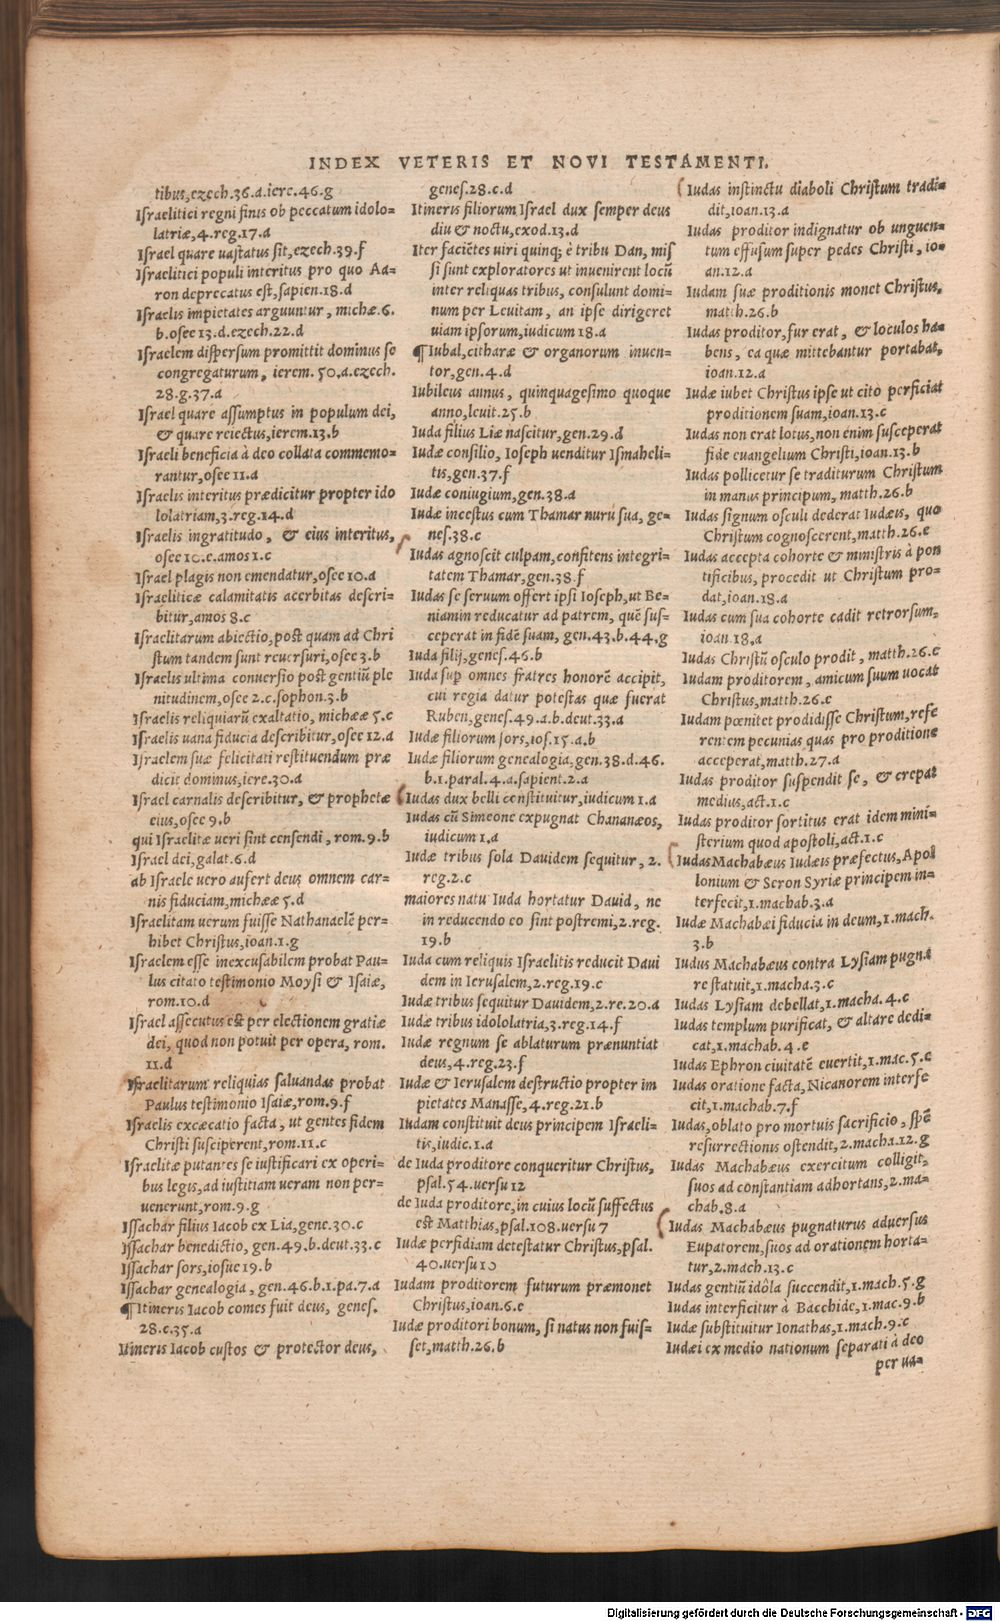 INDEX VETERIS ET NOVI TESTAMENTI.
tibus,ezech.36.a.iere.46.g
Israelitici regni finis ob peccatum idolo=
latriæ,4.reg.17.a
Israel quare uastatus sit,ezech.39.f
Israelitici populi interitus pro quo Aa=
ron deprecatus est,sapien.18.d
Israelis impietates arguuntur, michæ.6.
b.osee 13.d.ezech.22.d
Israelem dispersum promittit dominus se
congregaturum, ierem. 50.a.ezech.
28.g.37.a
Israel quare assumptus in populum dei,
& quare reiectus,ierem.13.b
Israeli beneficia à deo collata commemo=
rantur,osee 11.a
Israelis interitus prædicitur propter ido
lolatriam,3.reg.14.d
Israelis ingratitudo, & eius interitus,
osee 10.e.amos 1.c
Israel plagis non emendatur,osee 10.a
Israeliticæ calamitatis acerbitas descri=
bitur,amos 8.c
Israelitarum abiectio,post quam ad Chri
stum tandem sunt reuersuri,osee 3.b
Israelis ultima conuersio post gentiũ ple
nitudinem,osee 2.c.sophon.3.b
Israelis reliquiarũ exaltatio, michææ 5.c
Israelis uana fiducia describitur,osee 12.a
Israelem suæ felicitati restituendum præ
dicit dominus,iere.30.a
Israel carnalis describitur, & prophetæ
eius,osee 9.b
qui Israelitæ ueri sint censendi, rom.9.b
Israel dei,galat.6.d
ab Israele uero aufert deus omnem car=
nis fiduciam,michææ 5.d
Israelitam uerum fuisse Nathanaelẽ per=
hibet Christus,ioan.1.g
Israelem esse inexcusabilem probat Pau=
lus citato testimonio Moysi & Isaiæ,
rom.10.d
Israel assecutus est per electionem gratiæ
dei, quod non potuit per opera, rom.
11.d
Israelitarum reliquias saluandas probat
Paulus testimonio Isaiæ,rom.9.f
Israelis excæcatio facta, ut gentes fidem
Christi susciperent,rom.11.c
Israelitæ putantes se iustificari ex operi=
bus legis,ad iustitiam ueram non per=
uenerunt,rom.9.g
Issachar filius Iacob ex Lia,gene.30.c
Issachar benedictio, gen.49.b.deut.33.c
Issachar sors,iosue 19.b
Issachar genealogia, gen.46.b.1.pa.7.a
¶Itineris Iacob comes fuit deus, genes.
28.c.35.a
Itineris Iacob custos & protector deus,
genes.28.c.d
Itineris filiorum Israel dux semper deus
diu & noctu,exod.13.d
Iter faciẽtes uiri quinq; è tribu Dan, mis
si sunt exploratores ut inuenirent locũ
inter reliquas tribus, consulunt domi=
num per Leuitam, an ipse dirigeret
uiam ipsorum,iudicum 18.a
¶Iubal,citharæ & organorum inuen=
tor,gen.4.d
Iubileus annus, quinquagesimo quoque
anno,leuit.25.b
Iuda filius Liæ nascitur,gen.29.d
Iudæ consilio, Ioseph uenditur Ismaheli=
tis,gen.37.f
Iudæ coniugium,gen.38.a
Iudæ incestus cum Thamar nuru sua, ge=
nes.38.c
Iudas agnoscit culpam,confitens integri=
tatem Thamar,gen.38.f
Iudas se seruum offert ipsi Ioseph,ut Be=
niamin reducatur ad patrem, quẽ sus=
ceperat in fidẽ suam, gen.43.b.44.g
Iuda filij,genes.46.b
Iuda sup omnes fratres honorẽ accipit,
cui regia datur potestas quæ fuerat
Ruben,genes.49.a.b.deut.33.a
Iudæ filiorum sors,ios.15.a.b
Iudæ filiorum genealogia,gen.38.d.46.
b.1.paral.4.a.sapient.2.a
Iudas dux belli constituitur,iudicum 1.a
Iudas cũ Simeone expugnat Chananæos,
iudicum 1.a
Iudæ tribus sola Dauidem sequitur, 2.
reg.2.c
maiores natu Iuda hortatur Dauid, ne
in reducendo eo sint postremi,2.reg.
19.b
Iuda cum reliquis Israelitis reducit Daui
dem in Ierusalem,2.reg.19.c
Iudæ tribus sequitur Dauidem,2.re.20.a
Iudæ tribus idololatria,3.reg.14.f
Iudæ regnum se ablaturum prænuntiat
deus,4.reg.23.f
Iudæ & Ierusalem destructio propter im
pietates Manasse,4.reg.21.b
Iudam constituit deus principem Israeli=
tis,iudic.1.a
de Iuda proditore conqueritur Christus,
psal.54.uersu 12
de Iuda proditore,in cuius locũ suffectus
est Matthias,psal.108.uersu 7
Iudæ perfidiam detestatur Christus,psal.
40.uersu 10
Iudam proditorem futurum præmonet
Christus,ioan.6.e
Iudæ proditori bonum, si natus non fuis=
set,matth.26.b
Iudas instinctu diaboli Christum tradi=
dit,ioan.13.a
Iudas proditor indignatur ob unguen=
tum effusum super pedes Christi, io=
an.12.a
Iudam suæ proditionis monet Christus,
matth.26.b
Iudas proditor,fur erat, & loculos ha=
bens, ea quæ mittebantur portabat,
ioan.12.a
Iudæ iubet Christus ipse ut cito perficiat
proditionem suam,ioan.13.c
Iudas non erat lotus,non enim susceperat
fide euangelium Christi,ioan.13.b
Iudas pollicetur se traditurum Christum
in manus principum, matth.26.b
Iudas signum osculi dederat Iudæis, quo
Christum cognoscerent,matth.26.e
Iudas accepta cohorte & ministris à pon
tificibus, procedit ut Christum pro=
dat,ioan.18.a
Iudas cum sua cohorte cadit retrorsum,
ioan.18.a
Iudas Christũ osculo prodit, matth.26.e
Iudam proditorem, amicum suum uocat
Christus,matth.26.e
Iudam pœnitet prodidisse Christum,refe
rentem pecunias quas pro proditione
acceperat,matth.27.a
Iudas proditor suspendit se, & crepat
medius,act.1.c
Iudas proditor sortitus erat idem mini=
sterium quod apostoli,act.1.c
Iudas Machabæus Iudæis præfectus,Apol
lonium & Seron Syriæ principem in=
terfecit,1.machab.3.a
Iudæ Machabæi fiducia in deum,1.mach.
3.b
Iudas Machabæus contra Lysiam pugna
re statuit,1.macha.3.c
Iudas Lysiam debellat,1.macha.4.c
Iudas templum purificat, & altare dedi=
cat,1.machab.4.e
Iudas Ephron ciuitatẽ euertit,1.mac.5.c
Iudas oratione facta,Nicanorem interfe
cit,1.machab.7.f
Iudas,oblato pro mortuis sacrificio, spẽ
resurrectionis ostendit,2.macha.12.g
Iudas Machabæus exercitum colligit,
suos ad constantiam adhortans,2.ma=
chab.8.a
Iudas Machabæus pugnaturus aduersus
Eupatorem,suos ad orationem horta=
tur,2.mach.13.c
Iudas gentiũ idôla succendit,1.mach.5.g
Iudas interficitur à Bacchide,1.mac.9.b
Iudæ substituitur Ionathas,1.mach.9.c
Iudæi ex medio nationum separati à deo
per ua=
Digitalisierung gefördert durch die Deutsche Forschungsgemeinschaft - DFG